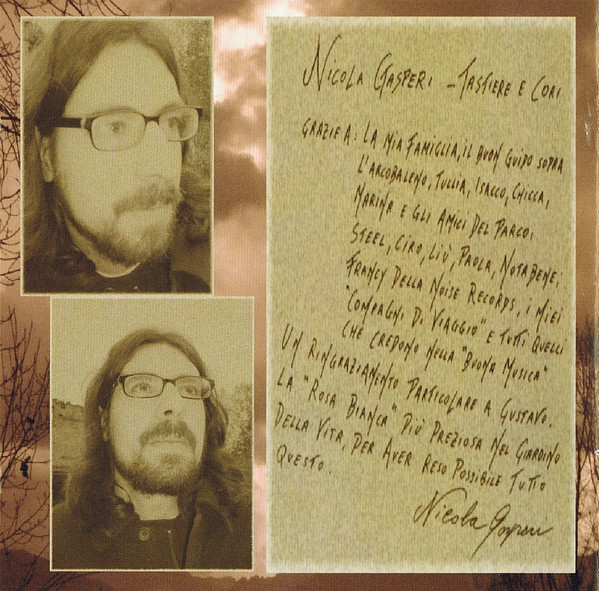 NICOLA GASPERI - TASTIERE E CORI
GRAZIE A: LA MIA FAMIGLIA, IL BUON GUIDO SOPRA
L'ARCOBALENO, TULLIA, ISACCO, CHICCA,
MARINA E GLI AMICI DEL PARCO,
STEEL, CIRO, LIÙ, PAOLA, NOTABENE,
FRANCY DELLA NOISE RECORDS, I MIEI
"COMPAGNI DI VIAGGIO" E TUTTI QUELLI
CHE CREDONO NELLA "BUONA MUSICA"
UN RINGRAZIAMENTO PARTICOLARE A GUSTAVO.
LA "ROSA BIANCA" PIÙ PREZIOSA NEL GIARDINO
DELLA VITA, PER AVER RESO POSSIBILE TUTTO
QUESTO.
Nicola Gasperi